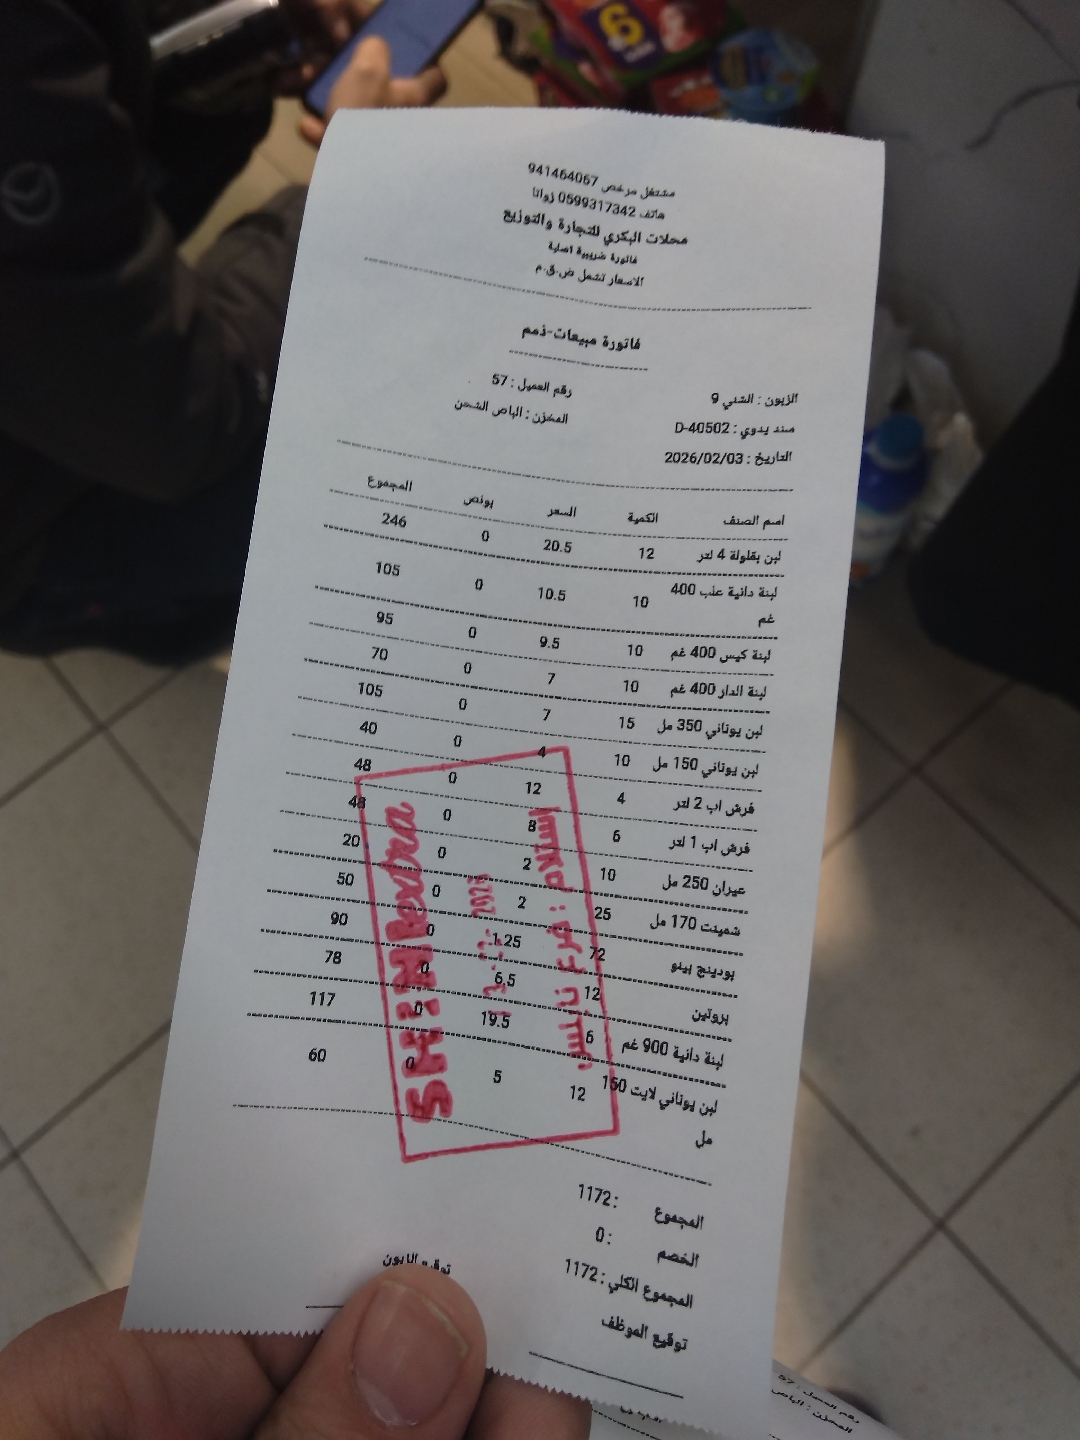 مشتغل مرخص 941464067
هاتف 0599317342 زواتا
محلات البكري للتجارة والتوزيع
فاتورة ضريبية اصلية
الاسعار تشمل ض.ق.م
فاتورة مبيعات-ذمم
الزبون : الشني 9 رقم العميل : 57
سند يدوي : D-40502 المخزن : الباص الشحن
التاريخ : 2026/02/03
اسم الصنف الكمية السعر بونص المجموع
لبن بقلولة 4 لتر 12 20.5 0 246
لبنة دانية علب 400 10 10.5 0 105
غم
لبنة كيس 400 غم 10 9.5 0 95
لبنة الدار 400 غم 10 7 0 70
لبن يوناني 350 مل 15 7 0 105
لبن يوناني 150 مل 10 4 0 40
فرش اب 2 لتر 4 12 0 48
فرش اب 1 لتر 6 8 0 48
عيران 250 مل 10 2 0 20
شمينت 170 مل 25 2 0 50
بودينج بينو 72 1.25 0 90
بروتين 12 6.5 0 78
لبنة دانية 900 غم 6 19.5 0 117
لبن يوناني لايت 150 12 5 0 60
مل
المجموع : 1172
الخصم : 0
المجموع الكلي : 1172
توقيع الموظف
رقم العميل : 57
المخزن : الباص